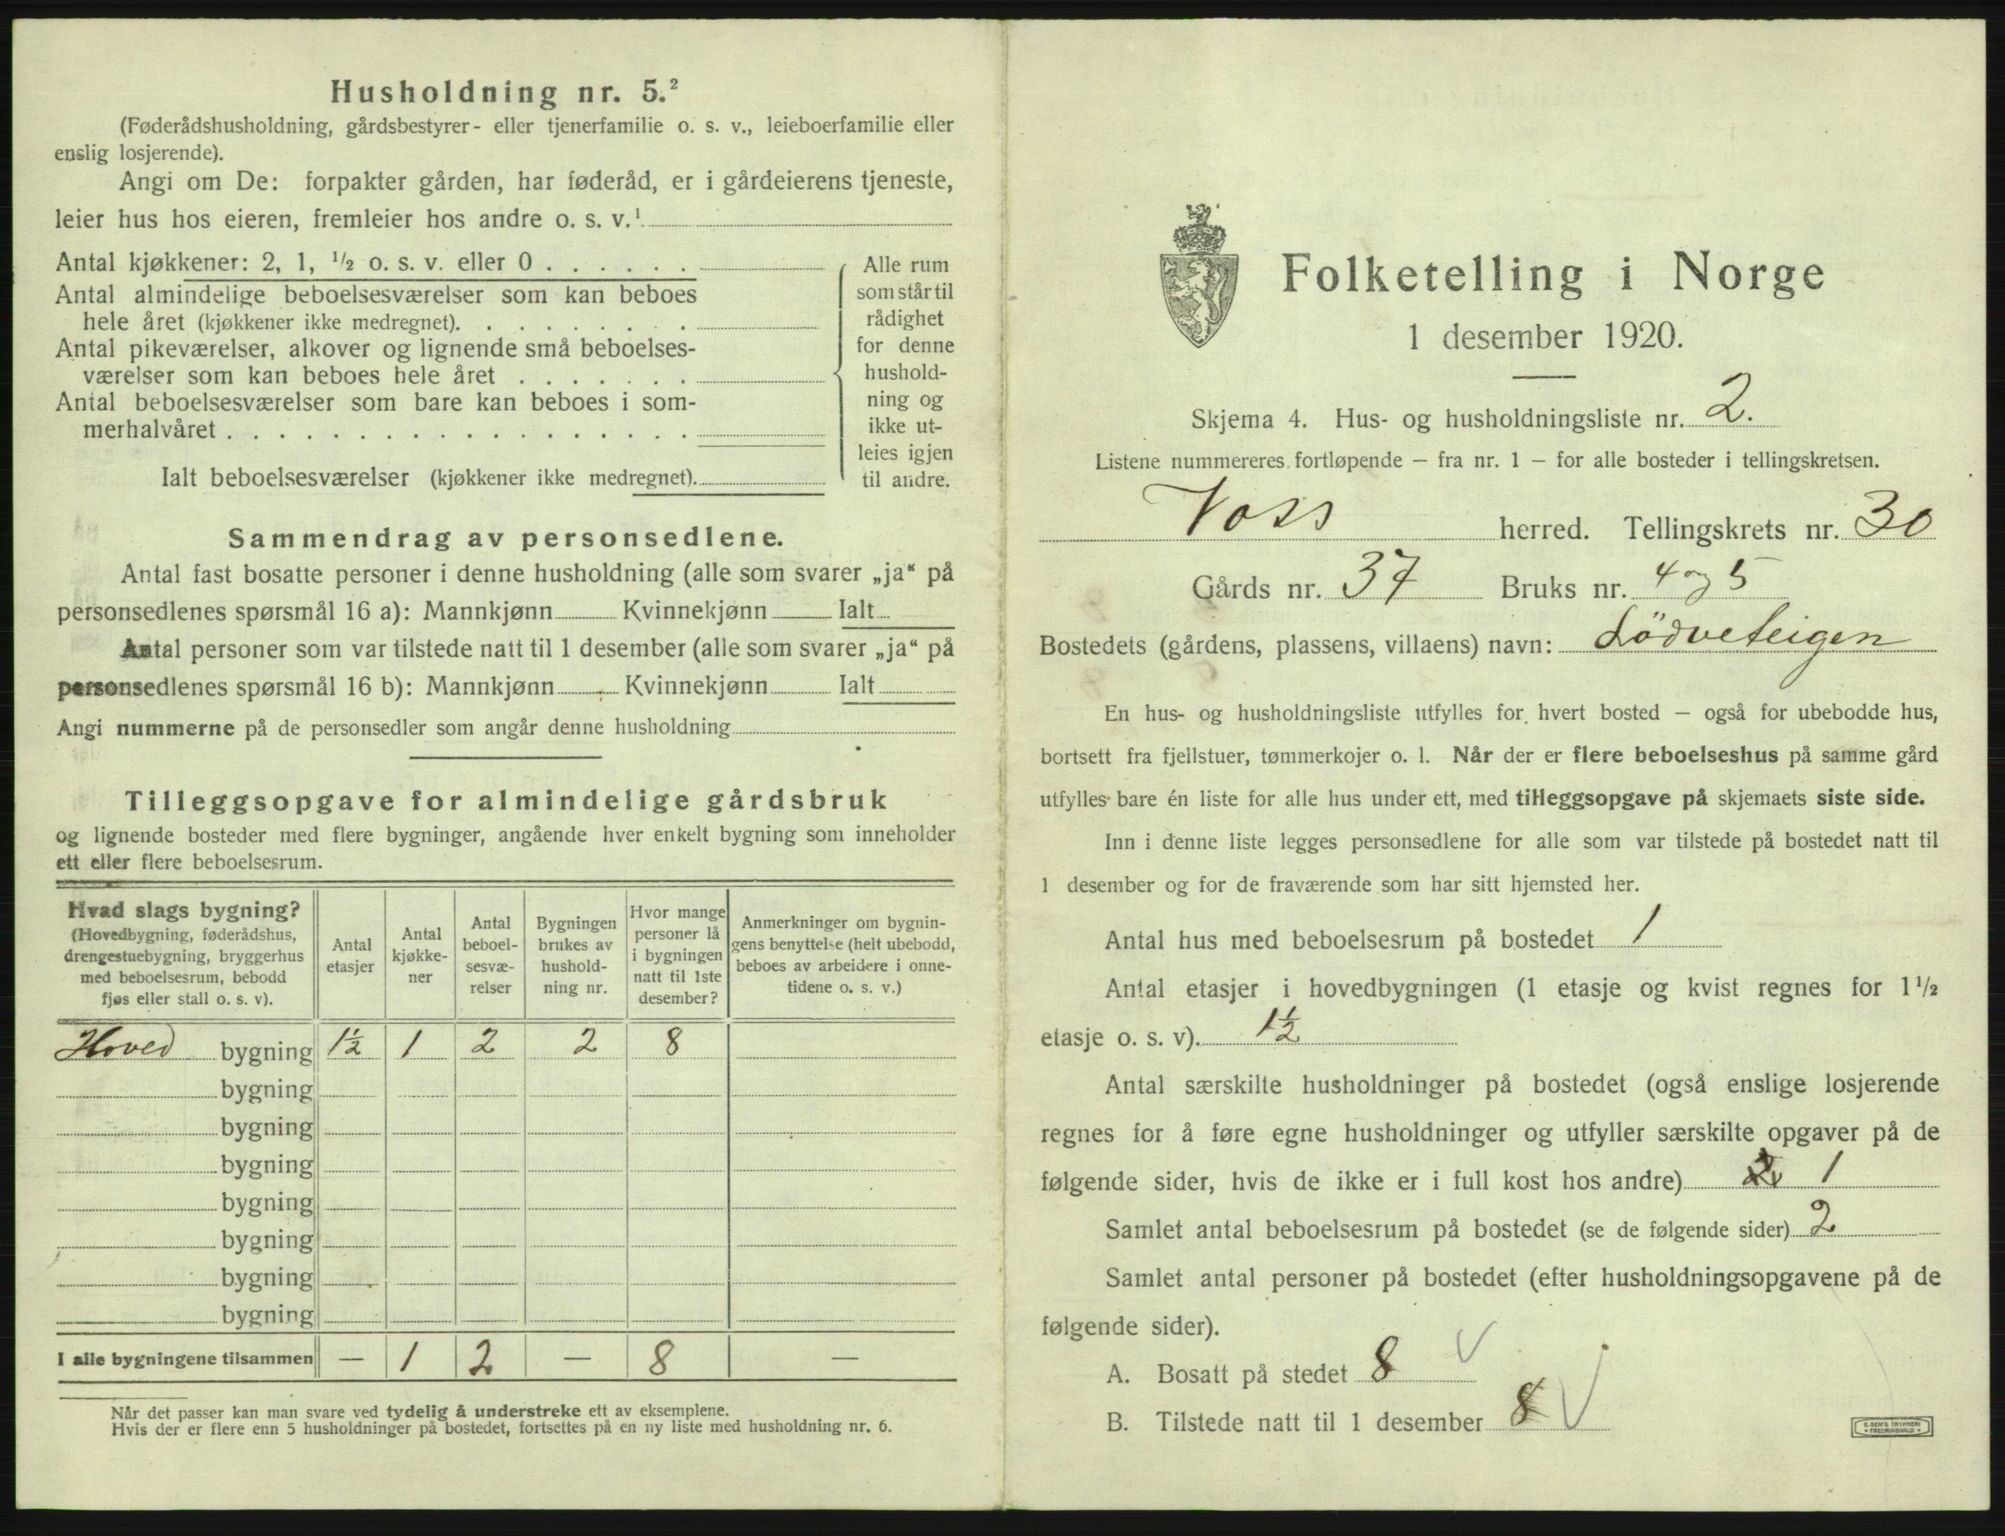 Husholdning nr. 5.²
(Føderådshusholdning, gårdsbestyrer- eller tjenerfamilie o. s. v., leieboerfamilie eller
enslig losjerende).
Angi om De: forpakter gården, har føderåd, er i gårdeierens tjeneste,
leier hus hos eieren, fremleier hos andre o. s. v.¹
Antal kjøkkener: 2, 1, ½ o. s. v. eller 0 . . . . . .
Antal almindelige beboelsesværelser som kan beboes
hele året (kjøkkener ikke medregnet). . . . . . . . .
Antal pikeværelser, alkover og lignende små beboelses-
værelser som kan beboes hele året . . . . . . .
Antal beboelsesværelser som bare kan beboes i som-
merhalvåret . . . . . . . . . . . . . . . . . .
Ialt beboelsesværelser (kjøkkener ikke medregnet).
Alle rum
som står til
rådighet
for denne
hushold-
ning og
ikke ut-
leies igjen
til andre.
Sammendrag av personsedlene.
Antal fast bosatte personer i denne husholdning (alle som svarer „ja“ på
personsedlenes spørsmål 16 a): Mannkjønn Kvinnekjønn Ialt
Antal personer som var tilstede natt til 1 desember (alle som svarer „ja“ på
personsedlenes spørsmål 16 b): Mannkjønn Kvinnekjønn Ialt
Angi nummerne på de personsedler som angår denne husholdning
Tilleggsopgave for almindelige gårdsbruk
og lignende bosteder med flere bygninger, angående hver enkelt bygning som inneholder
ett eller flere beboelsesrum.
Hvad slags bygning?
(Hovedbygning, føderådshus,
drengestuebygning, bryggerhus
med beboelsesrum, bebodd
fjøs eller stall o. s. v).
Antal
etasjer
Antal
kjøkke-
ner
Antal
beboel-
sesvæ-
relser
Bygningen
brukes av
hushold-
ning nr.
Hvor mange
personer lå
i bygningen
natt til 1ste
desember?
Anmerkninger om bygnin-
gens benyttelse (helt ubebodd,
beboes av arbeidere i onne-
tidene o. s. v.)
Hoved bygning 1½ 1 2 2 8
bygning
bygning
bygning
bygning
bygning
bygning
bygning
I alle bygningene tilsammen — 1 2 — 8 —
Når det passer kan man svare ved tydelig å understreke ett av eksemplene.
Hvis der er flere enn 5 husholdninger på bostedet, fortsettes på en ny liste med husholdning nr. 6.
Folketelling i Norge
1 desember 1920.
Skjema 4. Hus- og husholdningsliste nr. 2.
Listene nummereres fortløpende — fra nr. 1 — for alle bosteder i tellingskretsen.
Voss herred. Tellingskrets nr. 30
Gårds nr. 37 Bruks nr. 4 og 5
Bostedets (gårdens, plassens, villaens) navn: Lödveteigen
En hus- og husholdningsliste utfylles for hvert bosted — også for ubebodde hus,
bortsett fra fjellstuer, tømmerkojer o. l. Når der er flere beboelseshus på samme gård
utfylles bare én liste for alle hus under ett, med tilleggsopgave på skjemaets siste side.
Inn i denne liste legges personsedlene for alle som var tilstede på bostedet natt til
1 desember og for de fraværende som har sitt hjemsted her.
Antal hus med beboelsesrum på bostedet 1
Antal etasjer i hovedbygningen (1 etasje og kvist regnes for 1½
etasje o. s. v). 1½
Antal særskilte husholdninger på bostedet (også enslige losjerende
regnes for å føre egne husholdninger og utfyller særskilte opgaver på de
følgende sider, hvis de ikke er i full kost hos andre) 2 1
Samlet antal beboelsesrum på bostedet (se de følgende sider) 2
Samlet antal personer på bostedet (efter husholdningsopgavene på de
følgende sider).
A. Bosatt på stedet 8
B. Tilstede natt til 1 desember 8
E. SEM'S TRYKKERI
FREDRIKSHALD